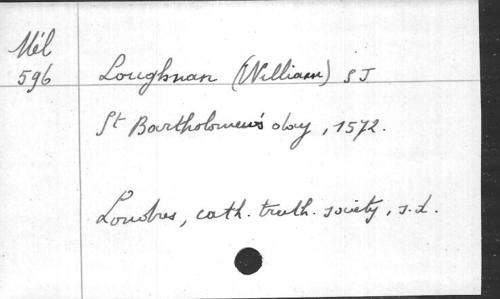 Mél
596
Loughnan (William) S J
St Bartholomew's day, 1572.
Londres, cath. truth. society, s.d.